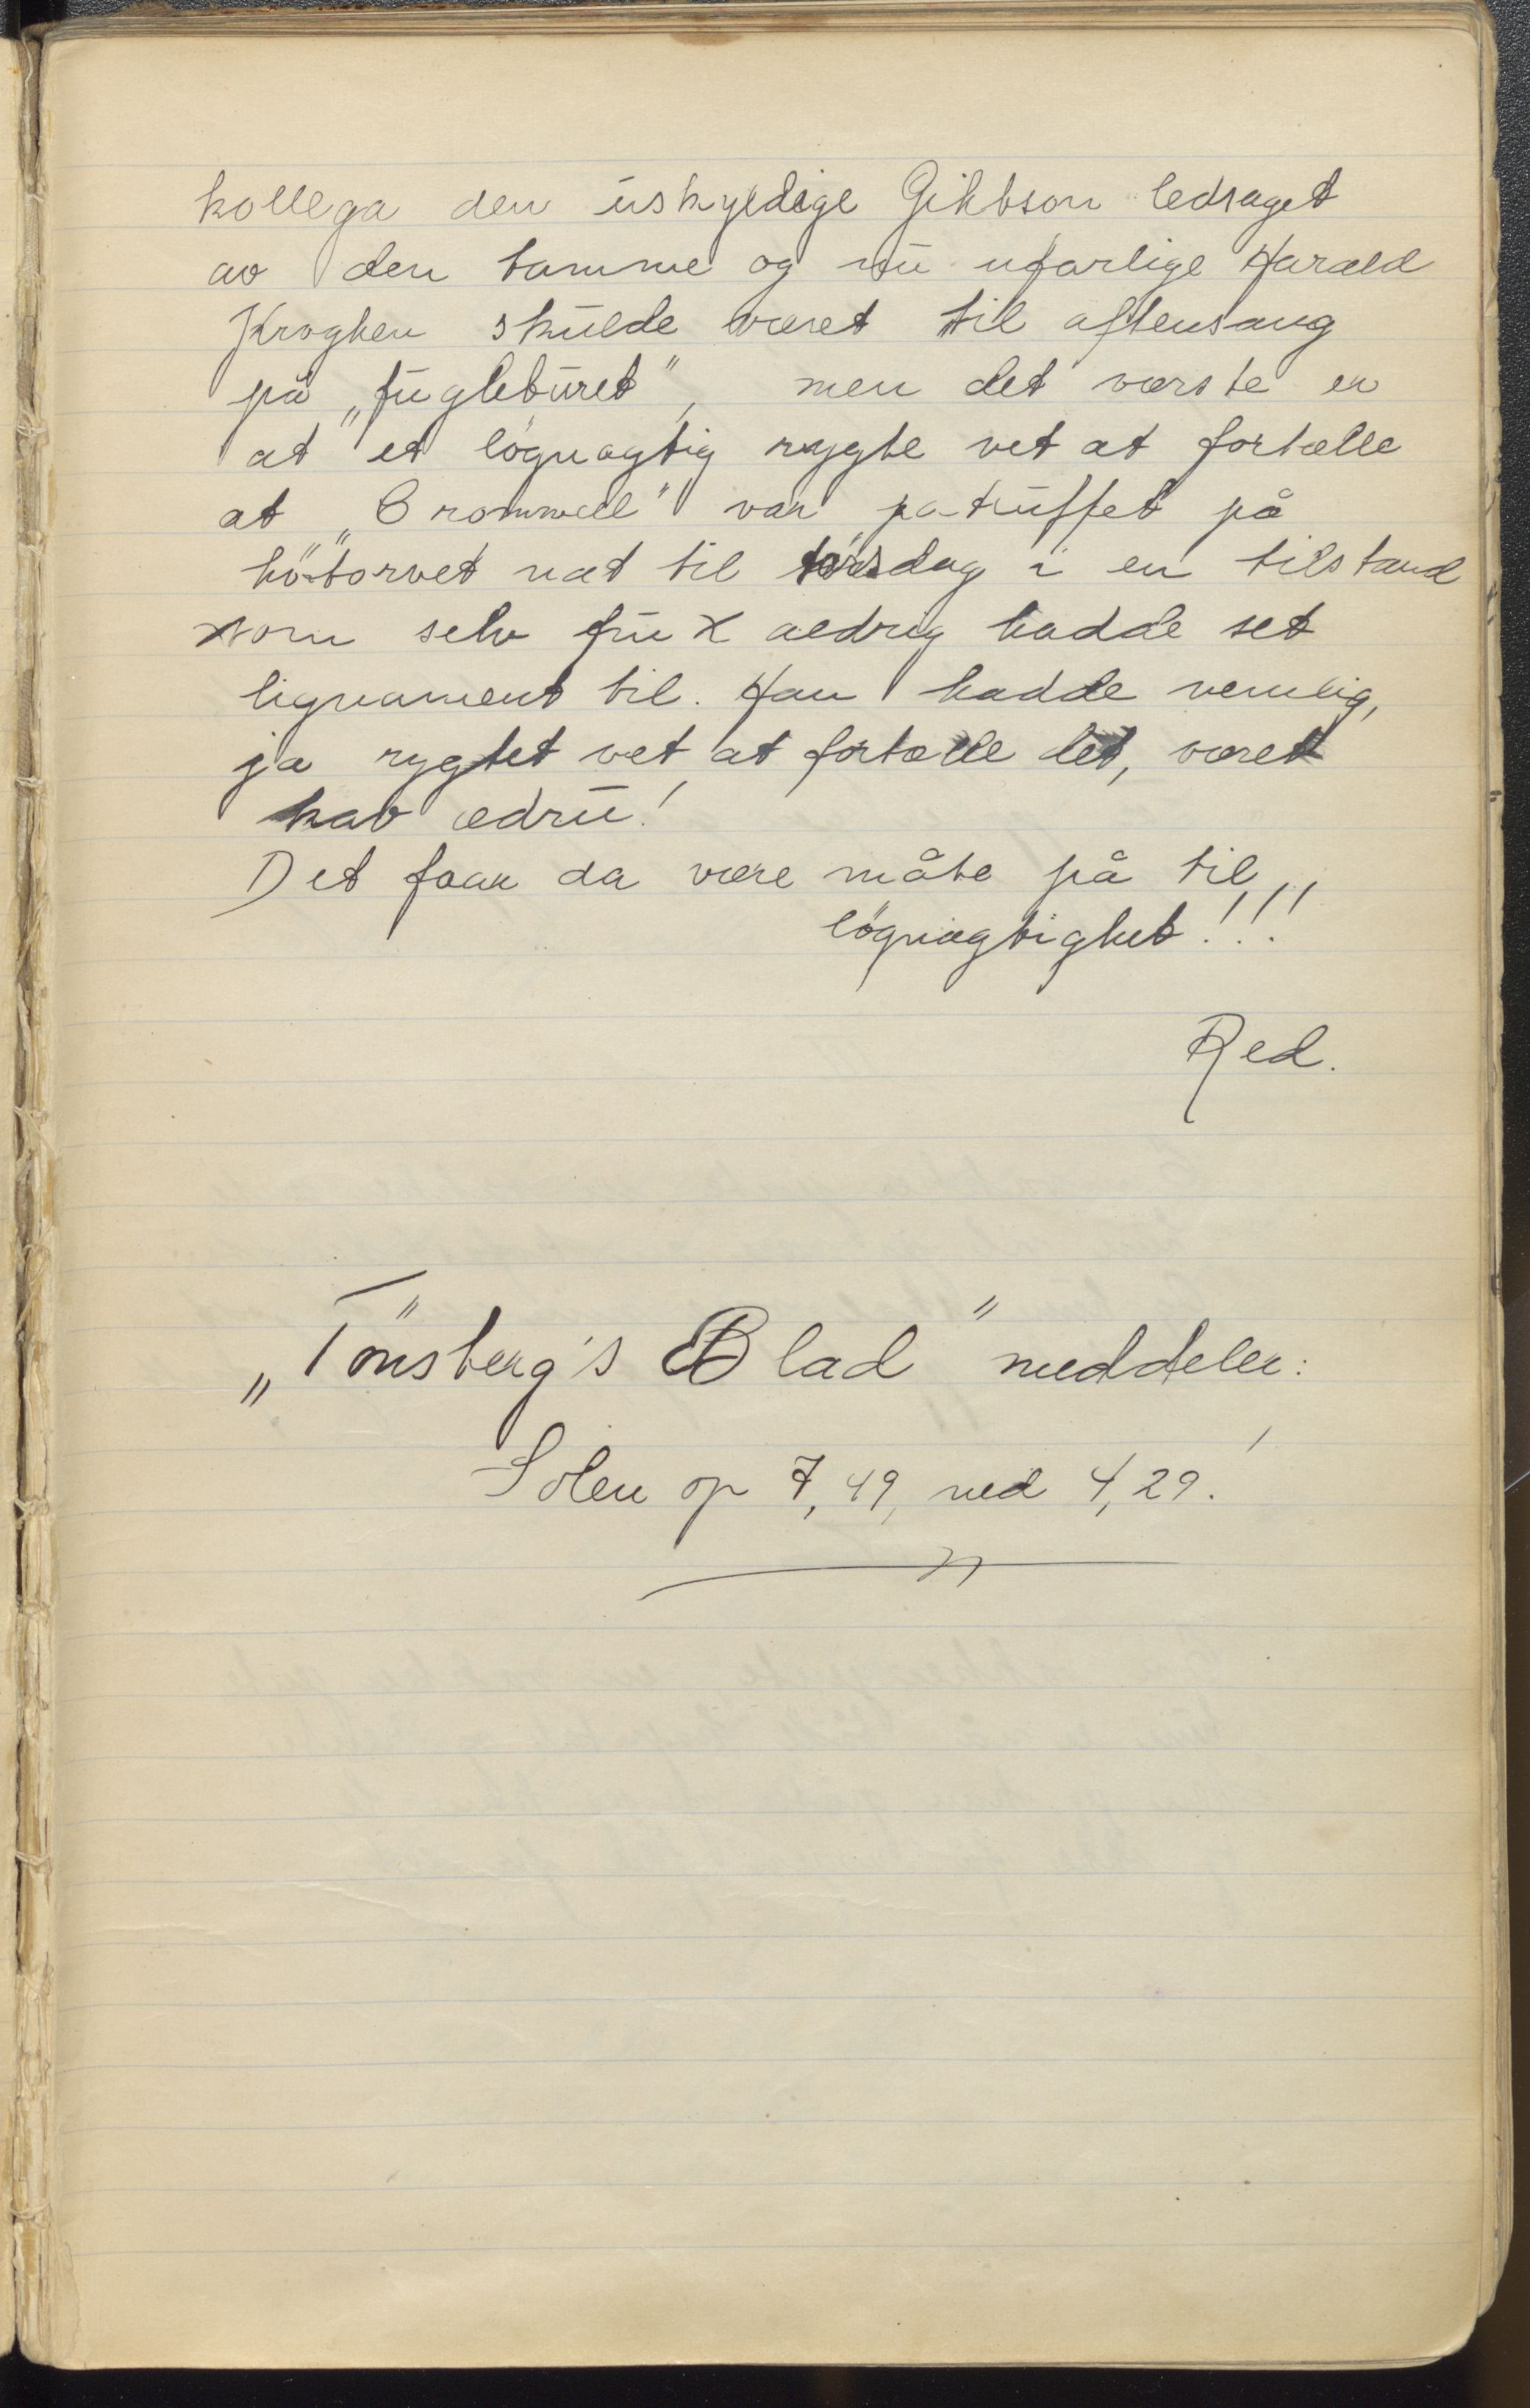 kollega den uskyldige Gibbson ledsaget
av den tamme og nu ufarlige Harald
Kroghen skulde været til aftensang
på „fugleburet", men det værste er
at et løgnagtig rygte vet at fortælle
at „Cromwell" var patruffet på
høtorvet nat til torsdag i en tilstand
som selv fru X aldrig hadde set
lignament til. Han hadde nemlig,
ja rygtet vet at fortælle det, været
kav ædru!
Det faar da være måte på til
løgnagtighet!!!
Red.
„Tönsberg's Blad" meddeler:
Solen op 7,49, ned 4,29!